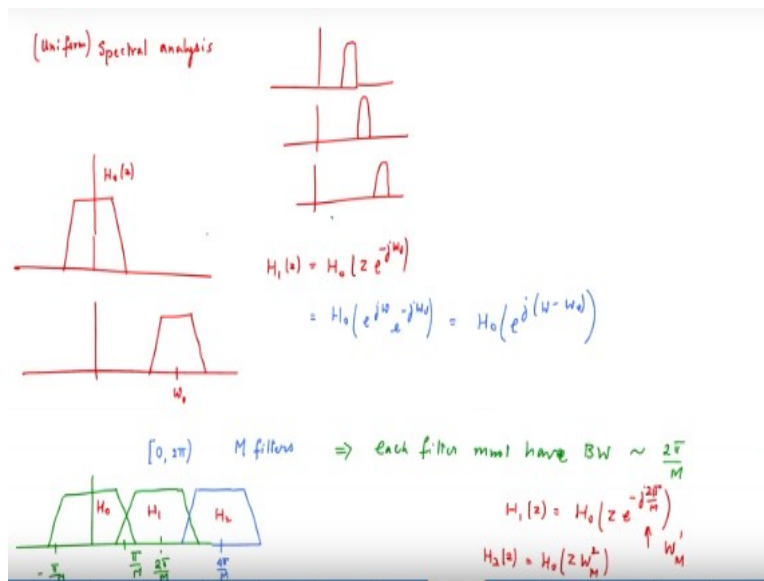 (Uniform) Spectral analysis
H₀(z)
H₁(z) = H₀(z e^{-jω₀})
= H₀(e^{jω} e^{-jω₀}) = H₀(e^{j(ω-ω₀)})
ω₀
[0, 2π) M filters ⇒ each filter must have BW ~ 2π/M
H₀ H₁ H₂
-π/M π/M 2π/M 4π/M
H₁(z) = H₀(z e^{-j2π/M})
↑ W_M^1
H₂(z) = H₀(z W_M^2)